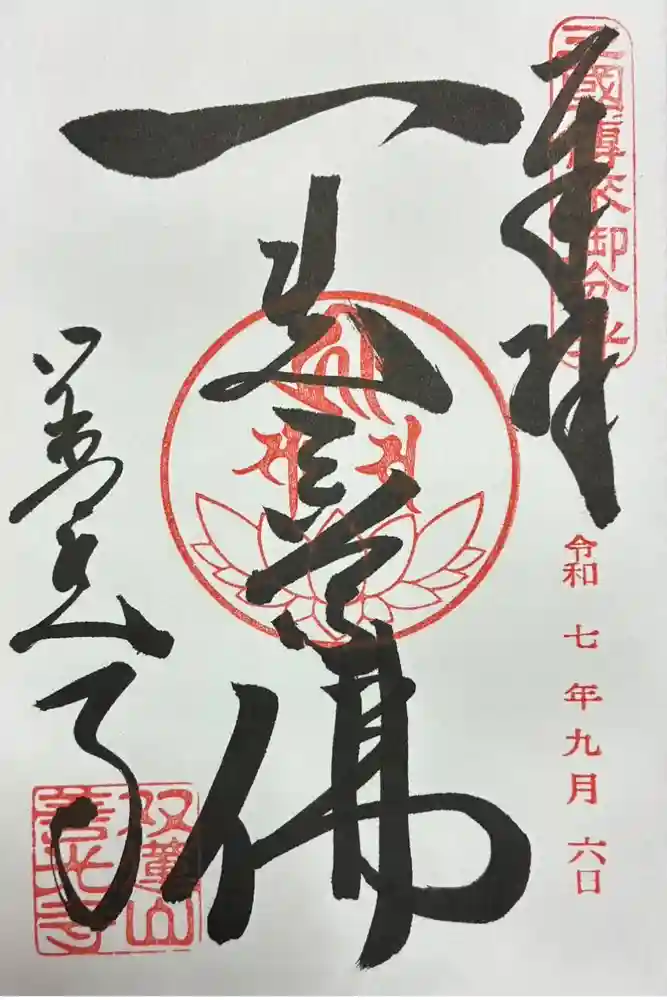 三國傳来御分光
奉拝
令和 七 年 九 月 六 日
一光三尊佛
善光寺
双蓮山
善光寺